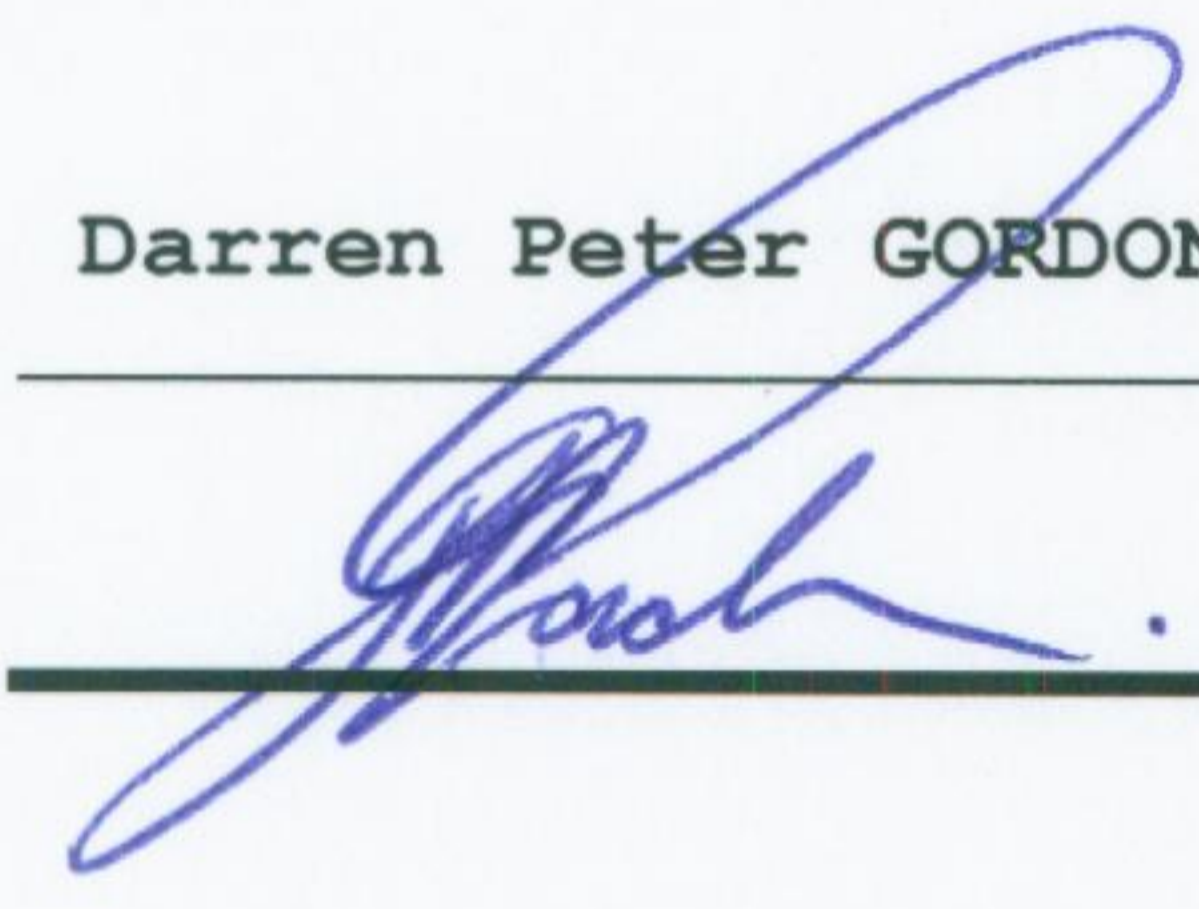 Darren Peter GORDON